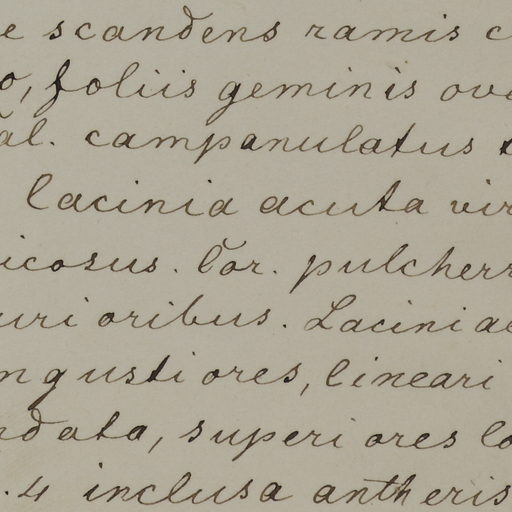 e scandens ramis c
o, foliis geminis ova
al. campanulatus
lacinia acuta vir
icosus. Cor. pulcherr
uri oribus. Laciniae
ngustiores, lineari
ndata, superiores lo
. 4 inclusa antheris